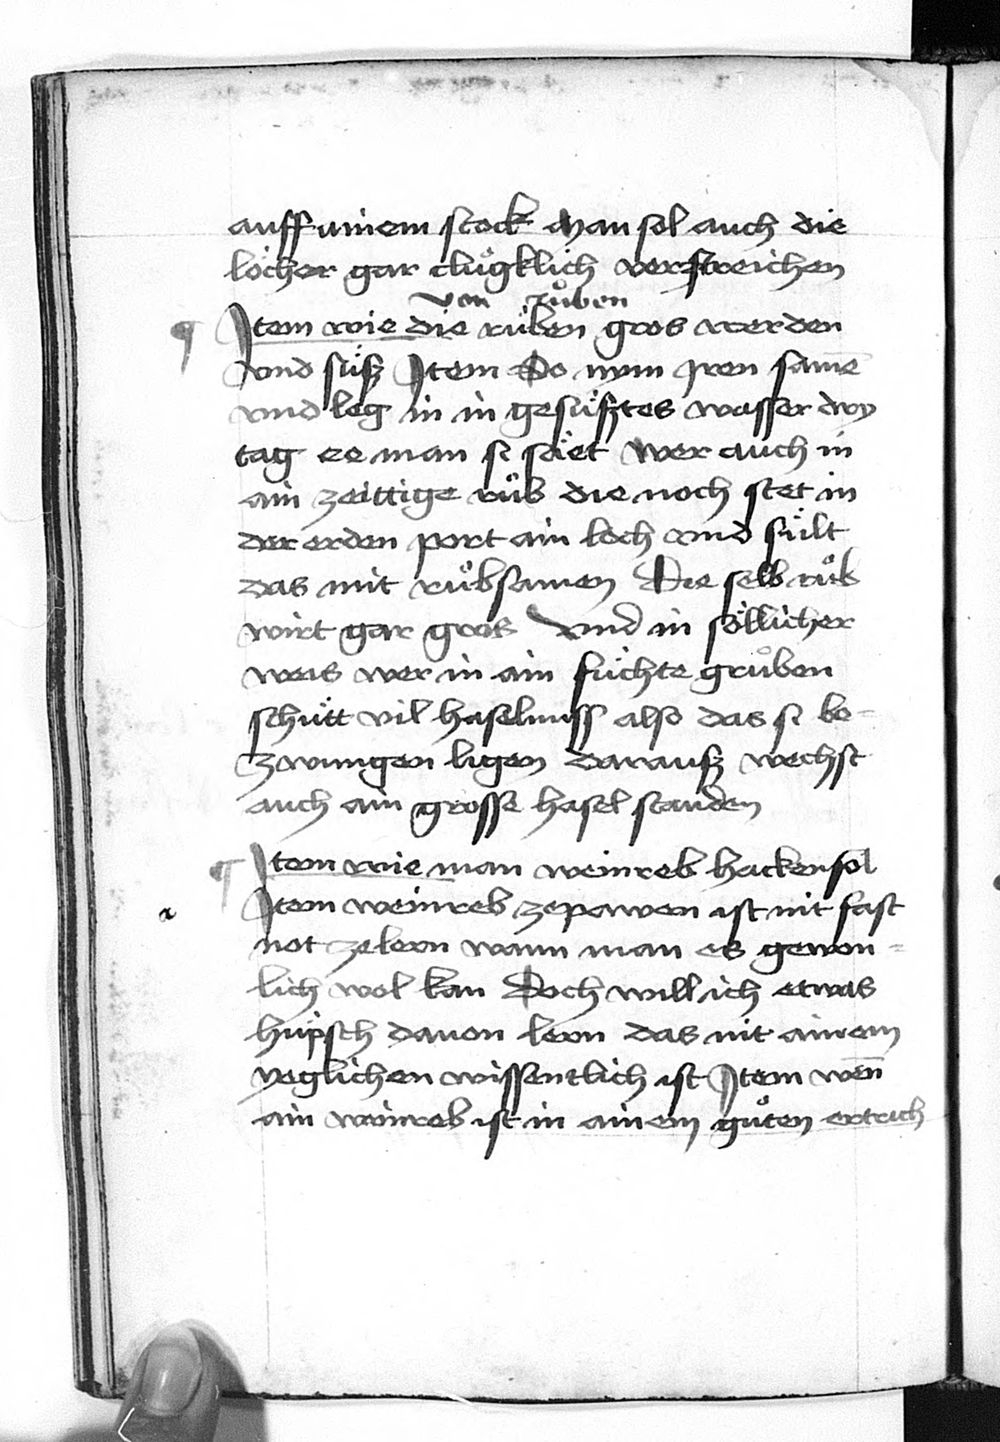 auff ainem stock Man sol auch die
löcher gar cluͦgklich verstreichen
von ruͦben
¶ Item wie die ruͤben gros werden
vnd suͤß Item So nym iren samē
vnd leg in in gesuͤßtes wasser dry
tag ee man si säet Wer auch in
ain zeittige ruͦb die noch stet in
der erden port ain loch vnd fuͤlt
das mit ruͦbsamen Die selb ruͦb
wirt gar gros Vnd in söllicher
weis wer in ain fuͤchte gruͦben
schuͤtt vil haselnuss also das si be-
zwungen ligen darauß wechst
auch ain grosse hasel stauden
¶ Item wie man weinreb hacken sol
Item weinreb zepawen ist nit fast
not zelern wann man es gewon-
lich wol kan Doch will ich etwas
huͤpsch dauon lern das nit ainem
yeglichen wissentlich ist Item wen̄
ain weinreb ist in ainem guͦten ertrich